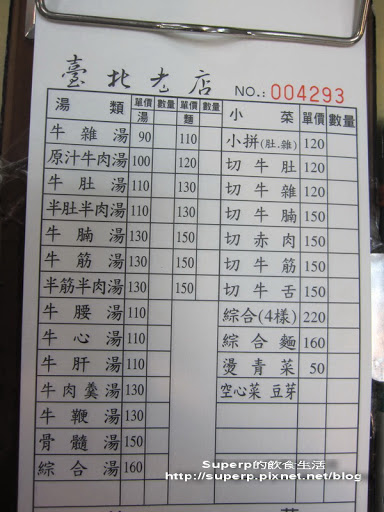 臺北老店
NO.: 004293
湯類 單價 數量 單價 數量 小菜 單價 數量
湯 麵
牛雜湯 90 110 小拼(肚.雜) 120
原汁牛肉湯 100 120 切牛肚 120
牛肚湯 110 130 切牛雜 120
半肚半肉湯 110 130 切牛腩 150
牛腩湯 130 150 切赤肉 150
牛筋湯 130 150 切牛筋 150
半筋半肉湯 130 150 切牛舌 150
牛腰湯 110 綜合(4樣) 220
牛心湯 110 綜合麵 160
牛肝湯 110 燙青菜 50
牛肉羹湯 130 空心菜 豆芽
牛鞭湯 130
骨髓湯 150
綜合湯 160
Superp的飲食生活
http://superp.pixnet.net/blog